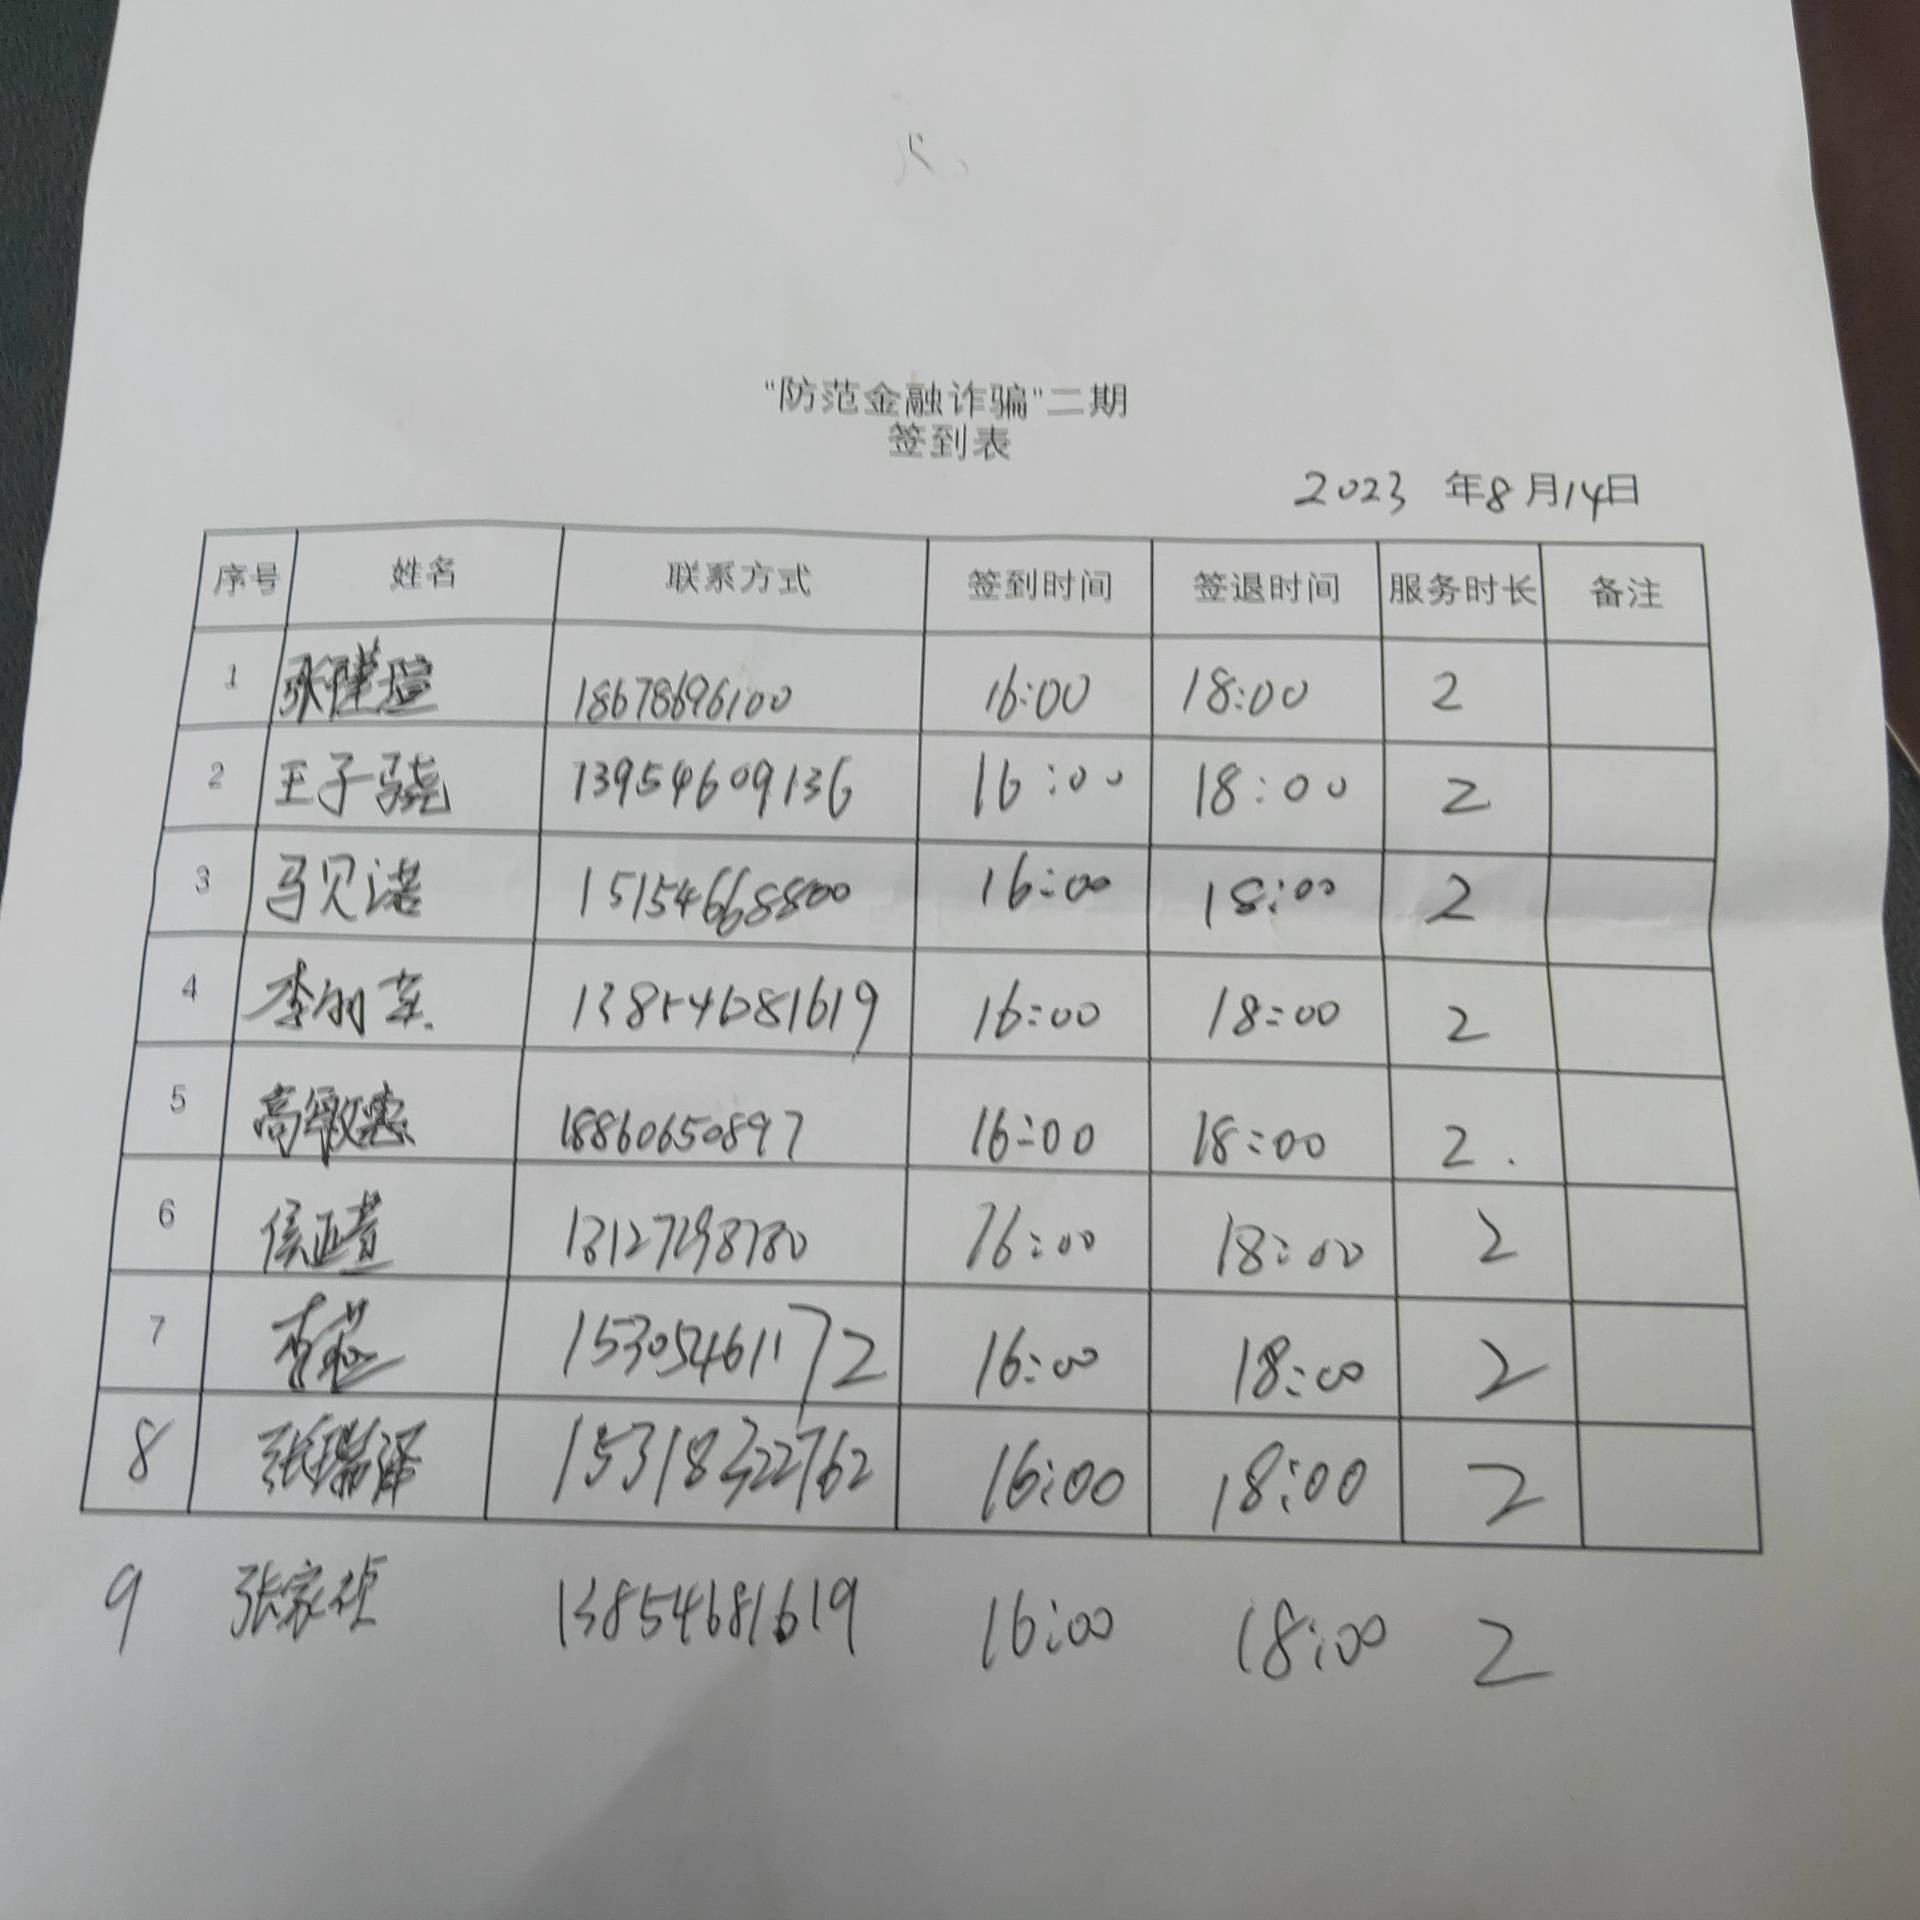 “防范金融诈骗”二期
签到表
2023 年8月14日
序号 姓名 联系方式 签到时间 签退时间 服务时长 备注
1 张瑾瑄 18678696100 16:00 18:00 2
2 王子骁 13954609136 16:00 18:00 2
3 马贝诺 15154668800 16:00 18:00 2
4 李 13854681619 16:00 18:00 2
5 高 18860650897 16:00 18:00 2.
6 侯 16:00 18:00 2
7 李 15305461172 16:00 18:00 2
8 张瑞泽 15318322762 16:00 18:00 2
9 张家祯 13854681619 16:00 18:00 2